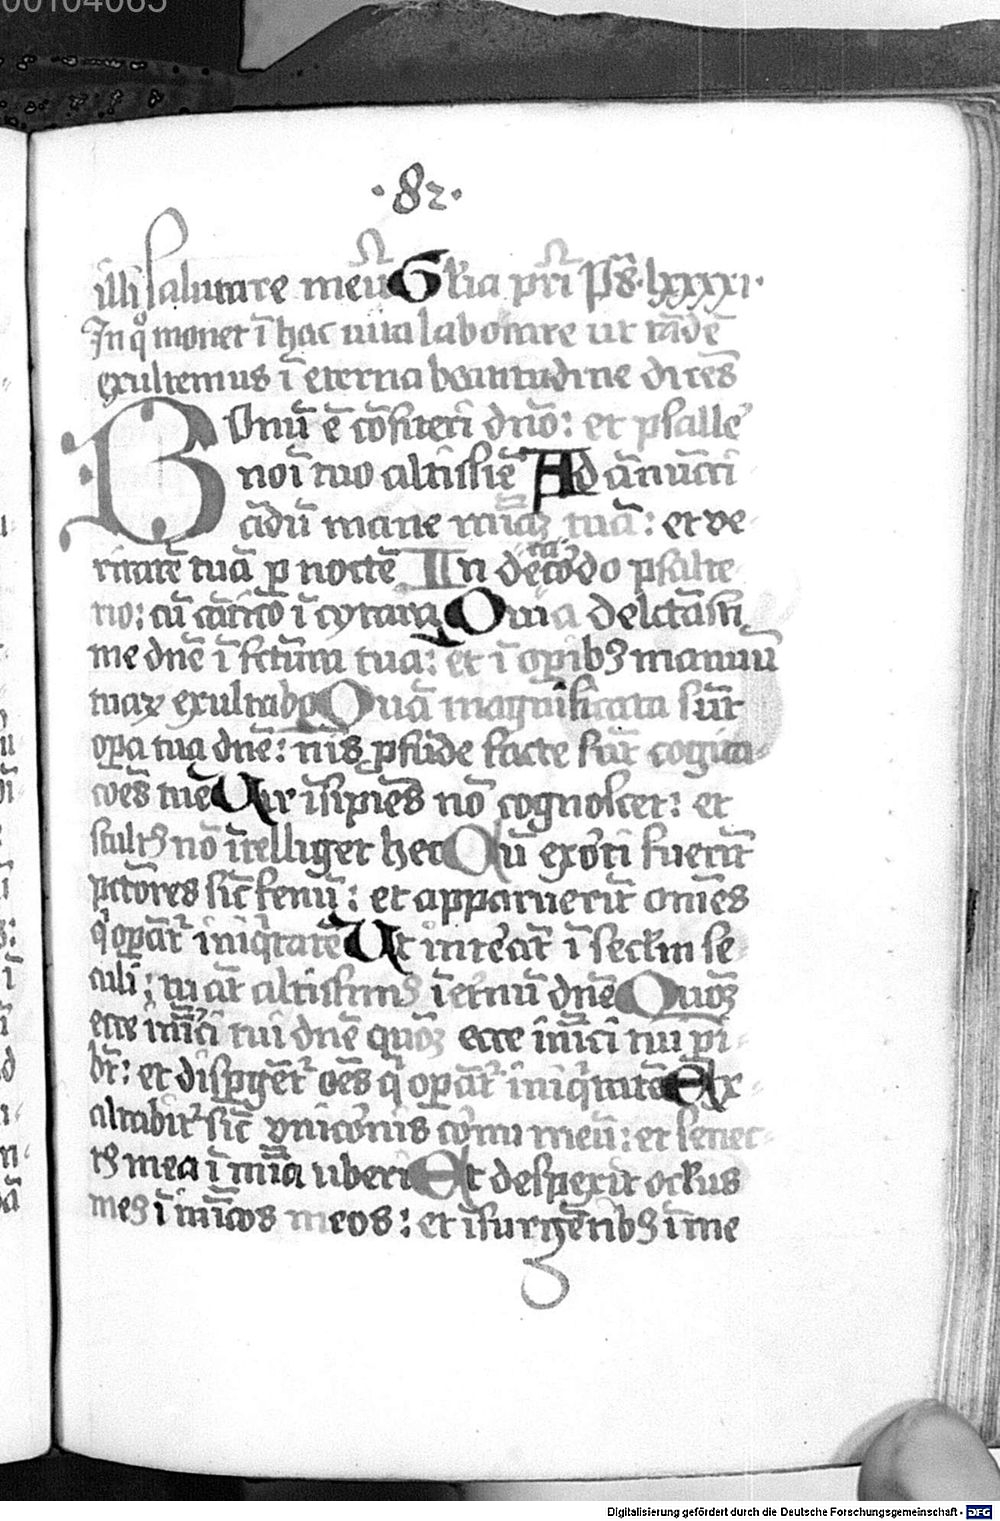 00104065
·82·
illi salutare meū Gl'ia pr̄i Ps̄·lxxxxi·
In q̊ monet ī hac uita laborare ut tādē
exultemus ī eterna beatitudine dicēs
Bonū ē cōfiteri dn̄o: et psalle
noī tuo altissīe Ad ānūcti
ādū mane mīaꝝ tuā: et ve
ritatē tuā p noctē In decacordo psalte
rio: cū cātico ī cytara Quia delctāsti
me dn̄e ī fctūra tua: et ī opibꝫ manuū
tuaꝝ exultabo Quā magnificata sūt
opa tua dn̄e: nīs pfūde facte sūt cogita
cōes tue Uir īsipiēs nō cognoscet: et
stultꝫ nō ītelliget hec Qū exorti fuerīt
pctōres sīc fenū: et apparuerīt om̄es
q opāt iniqtatē Ut intereāt ī seclm̄ se
culi: tu āt altissimꝫ ī eternū dn̄e Quō
ecce īmīci tui dn̄e quō ecce inīmici tui pi
bt̄: et dispgēt oēs q opāt iniqtatē Ex
altabit sīc ynicornis cornu meū: et senec
tꝫ mea ī mīa uberi Et despexit oclus
meꝫ īimīcos meos: et īsurgētibꝫ ī me
Digitalisierung gefördert durch die Deutsche Forschungsgemeinschaft - DFG